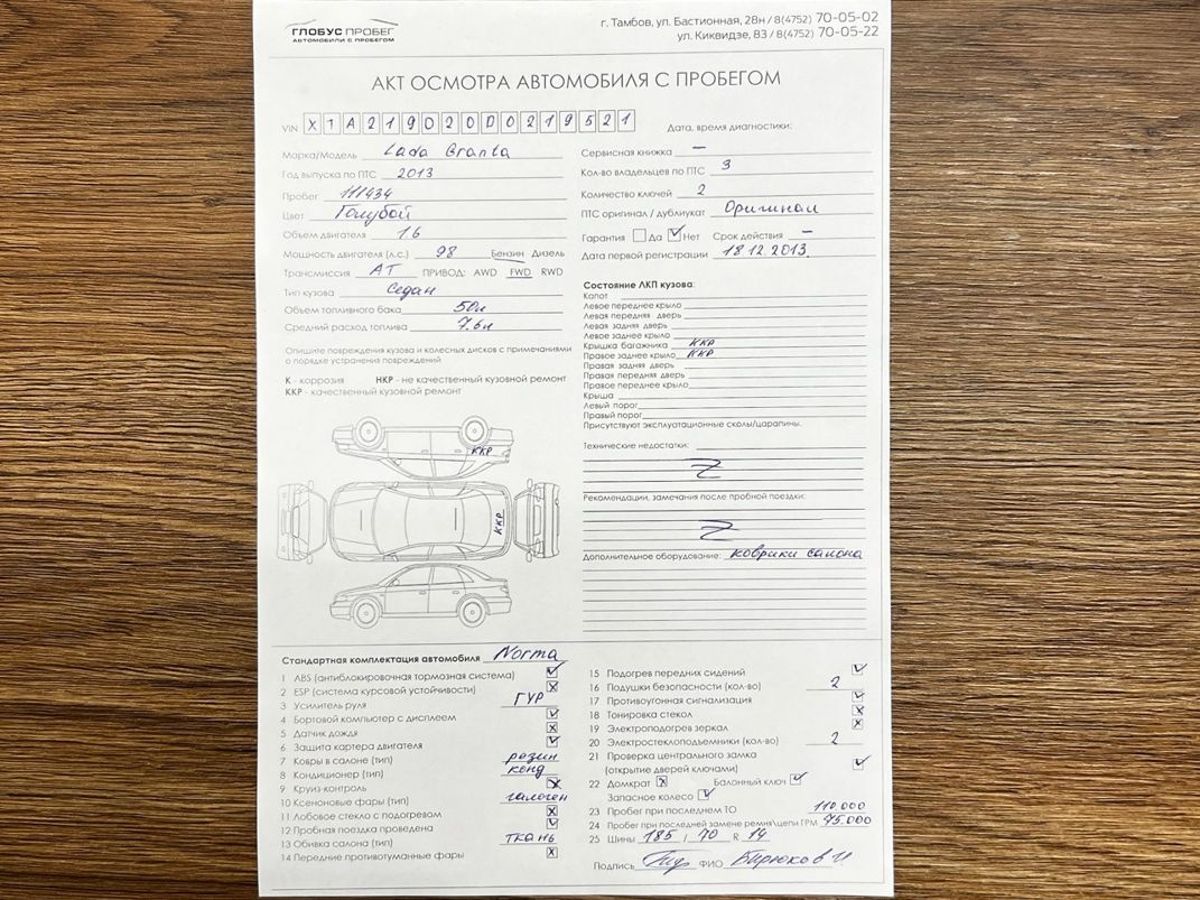 ГЛОБУС ПРОБЕГ
АВТОМОБИЛИ С ПРОБЕГОМ
г. Тамбов, ул. Бастионная, 28н / 8(4752) 70-05-02
ул. Киквидзе, 83 / 8(4752) 70-05-22
АКТ ОСМОТРА АВТОМОБИЛЯ С ПРОБЕГОМ
VIN X T A 2 1 9 0 2 0 D 0 2 1 9 5 2 1
Дата, время диагностики:
Марка/Модель Lada Granta
Год выпуска по ПТС 2013
Пробег 111434
Цвет Голубой
Объем двигателя 1.6
Мощность двигателя (л.с.) 98 Бензин Дизель
Трансмиссия АТ ПРИВОД: AWD FWD RWD
Тип кузова Седан
Объем топливного бака 50л
Средний расход топлива 7.6л
Опишите повреждения кузова и колесных дисков с примечаниями
о порядке устранения повреждений
К - коррозия НКР - не качественный кузовной ремонт
ККР - качественный кузовной ремонт
ККР
ККР
Сервисная книжка —
Кол-во владельцев по ПТС 3
Количество ключей 2
ПТС оригинал / дубликат Оригинал
Гарантия Да Нет Срок действия —
Дата первой регистрации 18.12.2013.
Состояние ЛКП кузова:
Капот
Левое переднее крыло
Левая передняя дверь
Левая задняя дверь
Левое заднее крыло
Крышка багажника ККР
Правое заднее крыло ККР
Правая задняя дверь
Правая передняя дверь
Правое переднее крыло
Крыша
Левый порог
Правый порог
Присутствуют эксплуатационные сколы/царапины.
Технические недостатки:
Рекомендации, замечания после пробной поездки:
Дополнительное оборудование: коврики салона
Стандартная комплектация автомобиля Norma
1 ABS (антиблокировочная тормозная система)
2 ESP (система курсовой устойчивости)
3 Усилитель руля ГУР
4 Бортовой компьютер с дисплеем
5 Датчик дождя
6 Защита картера двигателя
7 Ковры в салоне (тип) резин
8 Кондиционер (тип) конд
9 Круиз-контроль
10 Ксеноновые фары (тип) галоген
11 Лобовое стекло с подогревом
12 Пробная поездка проведена
13 Обивка салона (тип) ткань
14 Передние противотуманные фары
15 Подогрев передних сидений
16 Подушки безопасности (кол-во) 2
17 Противоугонная сигнализация
18 Тонировка стекол
19 Электроподогрев зеркал
20 Электростеклоподъемники (кол-во) 2
21 Проверка центрального замка
(открытие дверей ключами)
22 Домкрат Балонный ключ
Запасное колесо
23 Пробег при последнем ТО 110.000
24 Пробег при последней замене ремня\цепи ГРМ 75.000
25 Шины 185 / 70 R 14
Подпись ФИО Бирюков И